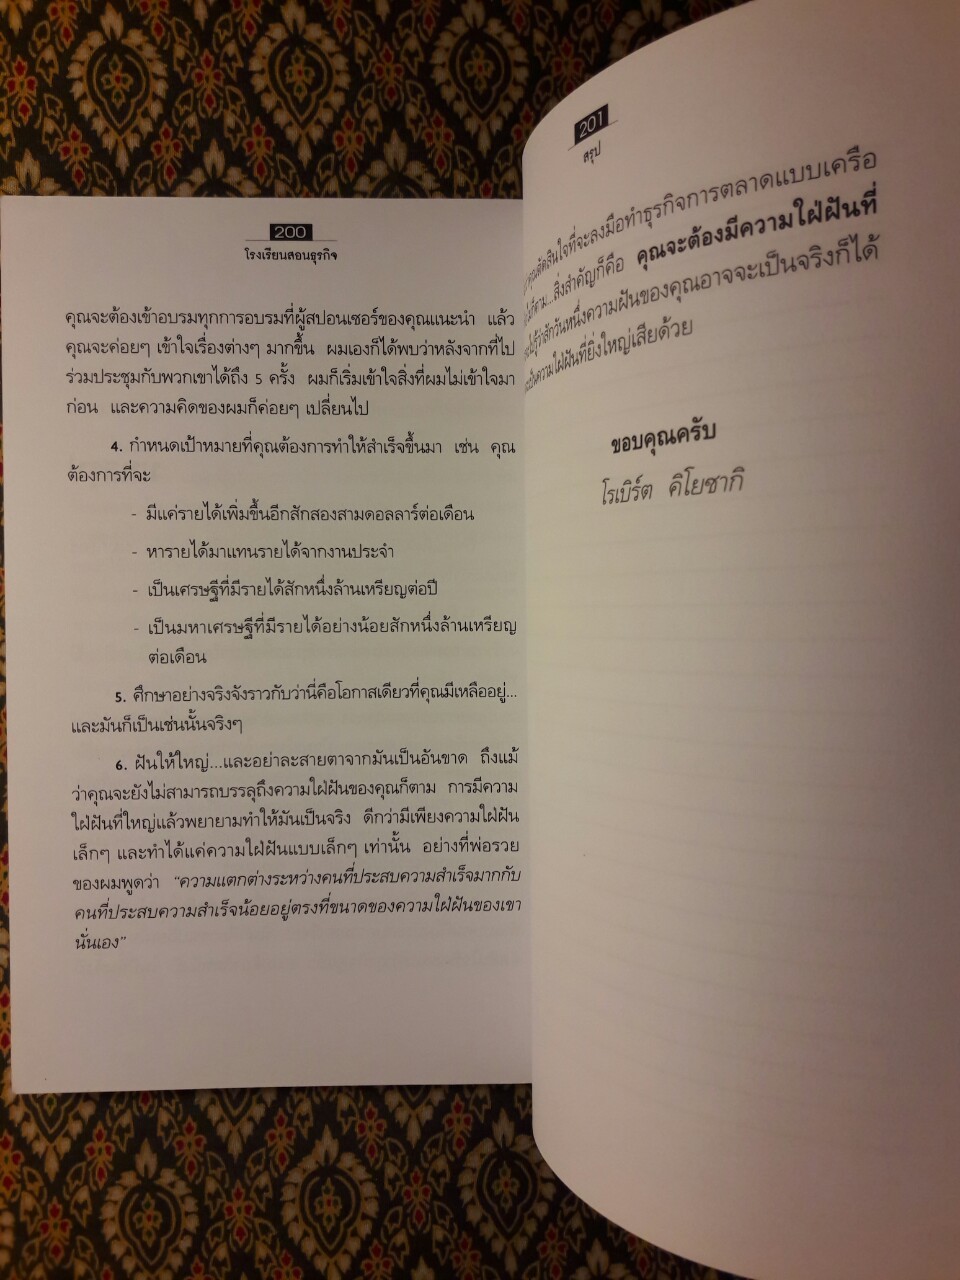 200
โรงเรียนสอนธุรกิจ
คุณจะต้องเข้าอบรมทุกการอบรมที่ผู้สปอนเซอร์ของคุณแนะนำ แล้ว
คุณจะค่อยๆ เข้าใจเรื่องต่างๆ มากขึ้น ผมเองก็ได้พบว่าหลังจากที่ไป
ร่วมประชุมกับพวกเขาได้ถึง 5 ครั้ง ผมก็เริ่มเข้าใจสิ่งที่ผมไม่เข้าใจมา
ก่อน และความคิดของผมก็ค่อยๆ เปลี่ยนไป
4. กำหนดเป้าหมายที่คุณต้องการทำให้สำเร็จขึ้นมา เช่น คุณ
ต้องการที่จะ
- มีแค่รายได้เพิ่มขึ้นอีกสักสองสามดอลลาร์ต่อเดือน
- หารายได้มาแทนรายได้จากงานประจำ
- เป็นเศรษฐีที่มีรายได้สักหนึ่งล้านเหรียญต่อปี
- เป็นมหาเศรษฐีที่มีรายได้อย่างน้อยสักหนึ่งล้านเหรียญ
ต่อเดือน
5. ศึกษาอย่างจริงจังราวกับว่านี่คือโอกาสเดียวที่คุณมีเหลืออยู่...
และมันก็เป็นเช่นนั้นจริงๆ
6. ฝันให้ใหญ่...และอย่าละสายตาจากมันเป็นอันขาด ถึงแม้
ว่าคุณจะยังไม่สามารถบรรลุถึงความใฝ่ฝันของคุณก็ตาม การมีความ
ใฝ่ฝันที่ใหญ่แล้วพยายามทำให้มันเป็นจริง ดีกว่ามีเพียงความใฝ่ฝัน
เล็กๆ และทำได้แค่ความใฝ่ฝันแบบเล็กๆ เท่านั้น อย่างที่พ่อรวย
ของผมพูดว่า "ความแตกต่างระหว่างคนที่ประสบความสำเร็จมากกับ
คนที่ประสบความสำเร็จน้อยอยู่ตรงที่ขนาดของความใฝ่ฝันของเขา
นั่นเอง"
201
สรุป
คุณตัดสินใจที่จะลงมือทำธุรกิจการตลาดแบบเครือ
ก็ตาม...สิ่งสำคัญก็คือ คุณจะต้องมีความใฝ่ฝันที่
รู้ว่าสักวันหนึ่งความฝันของคุณอาจจะเป็นจริงก็ได้
เป็นความใฝ่ฝันที่ยิ่งใหญ่เสียด้วย
ขอบคุณครับ
โรเบิร์ต คิโยซากิ